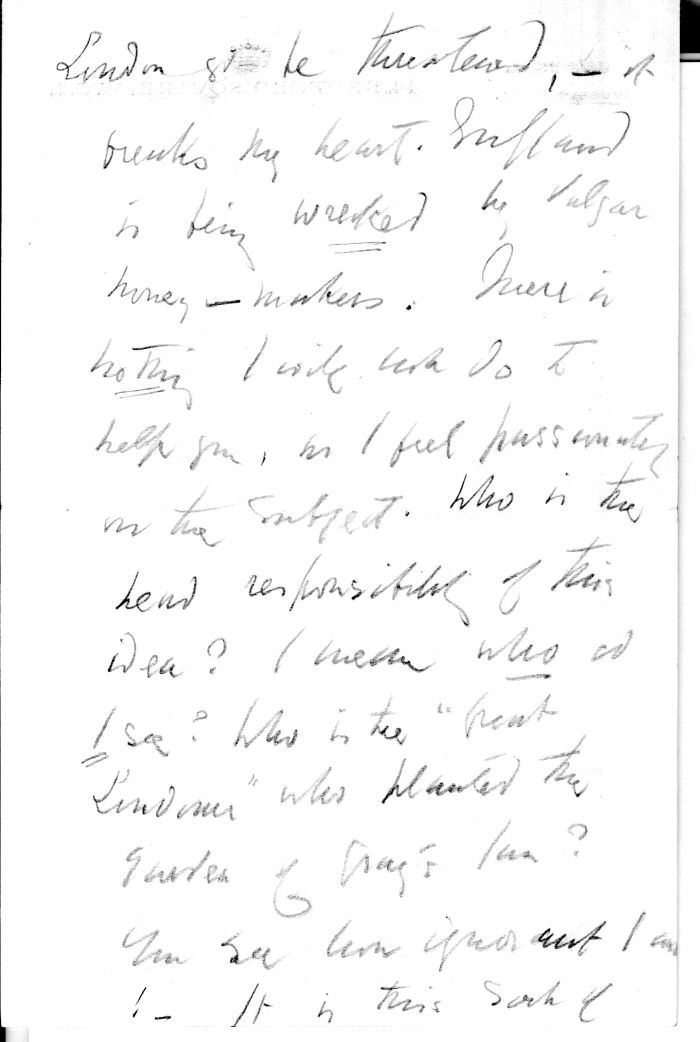 London shd be threatened, – it
breaks my heart. England
is being wrecked by vulgar
money-makers. There is
nothing I will not do to
help you, as I feel passionately
on the subject. Who is the
head responsibility of this
idea? I mean who cd
I see? Who is the "Great
Londoner" who planted the
Garden of Gray's Inn?
You see how ignorant I am
! – It is this sort of